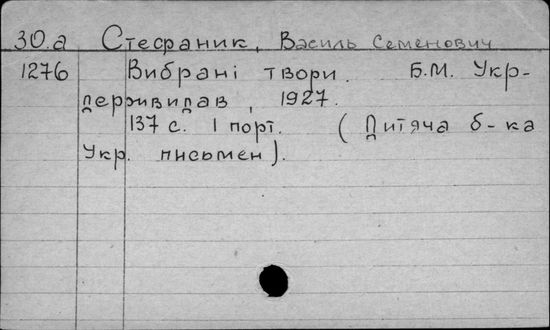 30.а Стефаник, Василь Семенович
1276 Вибрані твори. Б.М. Укр-
держвидав, 1927.
137 с. 1 порт. (Дитяча б-ка
Укр. письмен).